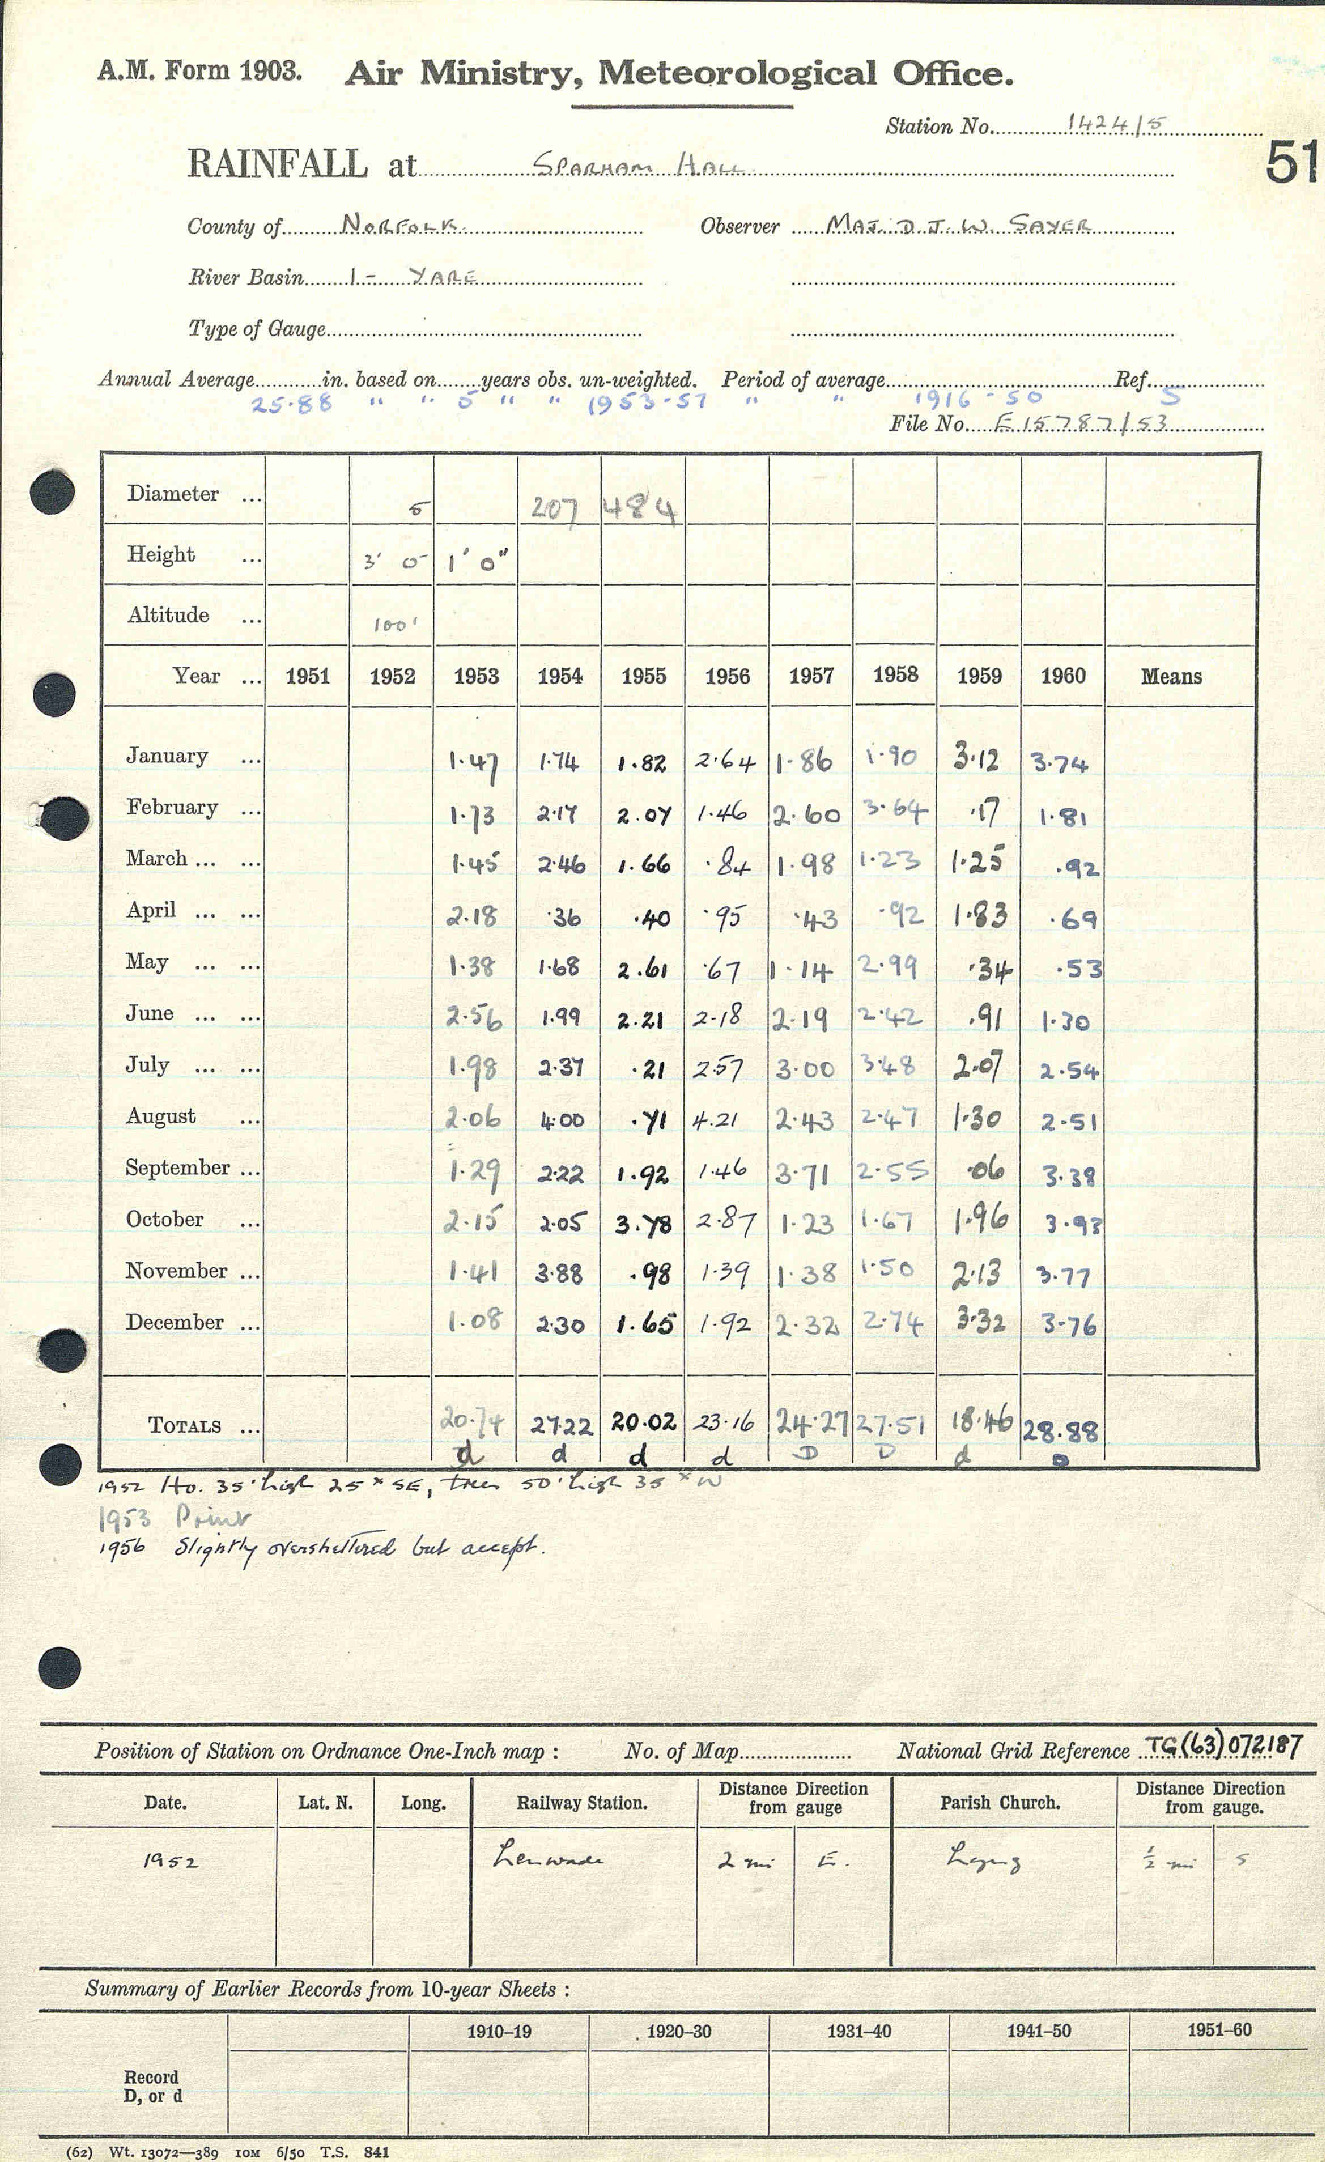 A.M. Form 1903. Air Ministry, Meteorological Office.
Station No. 1424/5
51
RAINFALL at SPARHAM HALL
County of NORFOLK. Observer MAJ. D. J. W. SAYER
River Basin 1 - YARE
Type of Gauge
Annual Average in. based on years obs. un-weighted. Period of average Ref.
25.88 " " 5 " " 1953-57 " " 1916-50 5
File No. E 15787/53
Diameter ... 5 207 484
Height ... 3' 0" 1' 0"
Altitude ... 100'
Year ... 1951 1952 1953 1954 1955 1956 1957 1958 1959 1960 Means
January ... 1.47 1.74 1.82 2.64 1.86 1.90 3.12 3.74
February ... 1.73 2.17 2.07 1.46 2.60 3.64 .17 1.81
March ... ... 1.45 2.46 1.66 .84 1.98 1.23 1.25 .92
April ... ... 2.18 .36 .40 .95 .43 .92 1.83 .69
May ... ... 1.38 1.68 2.61 .67 1.14 2.99 .34 .53
June ... ... 2.56 1.99 2.21 2.18 2.19 2.42 .91 1.30
July ... ... 1.98 2.37 .21 2.57 3.00 3.48 2.07 2.54
August ... 2.06 4.00 .71 4.21 2.43 2.47 1.30 2.51
September ... 1.29 2.22 1.92 1.46 3.71 2.55 .06 3.38
October ... 2.15 2.05 3.78 2.87 1.23 1.67 1.96 3.93
November ... 1.41 3.88 .98 1.39 1.38 1.50 2.13 3.77
December ... 1.08 2.30 1.65 1.92 2.32 2.74 3.32 3.76
TOTALS ... 20.74 27.22 20.02 23.16 24.27 27.51 18.46 28.88
d d d d D D d D
1952 Ho. 35' high 25 x SE, trees 50' high 35 x W
1953 Print
1956 Slightly oversheltered but accept.
Position of Station on Ordnance One-Inch map : No. of Map National Grid Reference TG(63)072187
Date. Lat. N. Long. Railway Station. Distance Direction from gauge Parish Church. Distance Direction from gauge.
1952 Lenwade 2 mi E. Lyng ½ mi S
Summary of Earlier Records from 10-year Sheets :
1910–19 1920–30 1931–40 1941–50 1951–60
Record
D, or d
(62) Wt. 13072—389 10M 6/50 T.S. 841